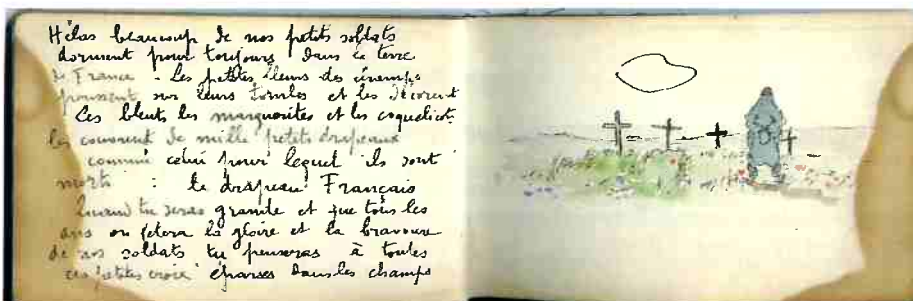 Hélas beaucoup de nos petits soldats
dorment pour toujours dans la terre
de France. Les petites fleurs des champs
poussent sur leurs tombes et les décorent
Les bleuets les marguerites et les coquelicots
les couvrent de mille petits drapeaux
comme celui pour lequel ils sont
morts : le drapeau Français
Quand tu seras grande et que tous les
ans on fetera la gloire et la bravoure
de nos soldats tu penseras à toutes
ces petites croix éparses dans les champs